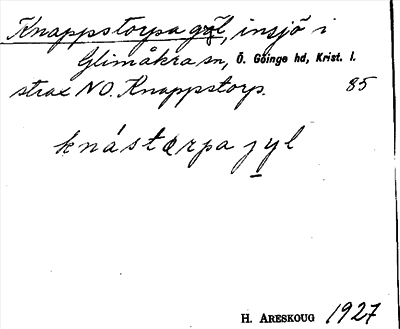 Knappstorpa göl, insjö i
Glimåkra sn, Ö. Göinge hd, Krist. l.
strax NO. Knappstorp. 85
knástærpa jyl
H. ARESKOUG 1927